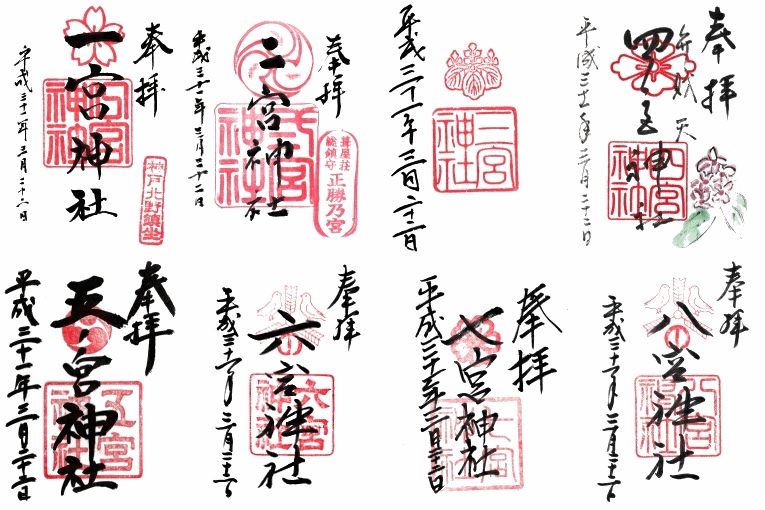 奉拝
一宮神社
一宮神社
神戸北野鎮坐
平成三十一年三月二十二日
奉拝
二宮神社
二宮神社
葺屋荘
総鎮守
正勝乃宮
平成三十一年三月二十二日
三宮神社
平成三十一年三月二十二日
奉拝
弁財天
四宮神社
四宮神社
平成三十一年三月二十二日
奉拝
五宮神社
五宮神社
平成三十一年三月二十二日
奉拝
六宮神社
六宮神社
平成三十一年三月二十二日
奉拝
七宮神社
七宮神社
平成三十一年三月二十二日
奉拝
八宮神社
八宮神社
平成三十一年三月二十二日